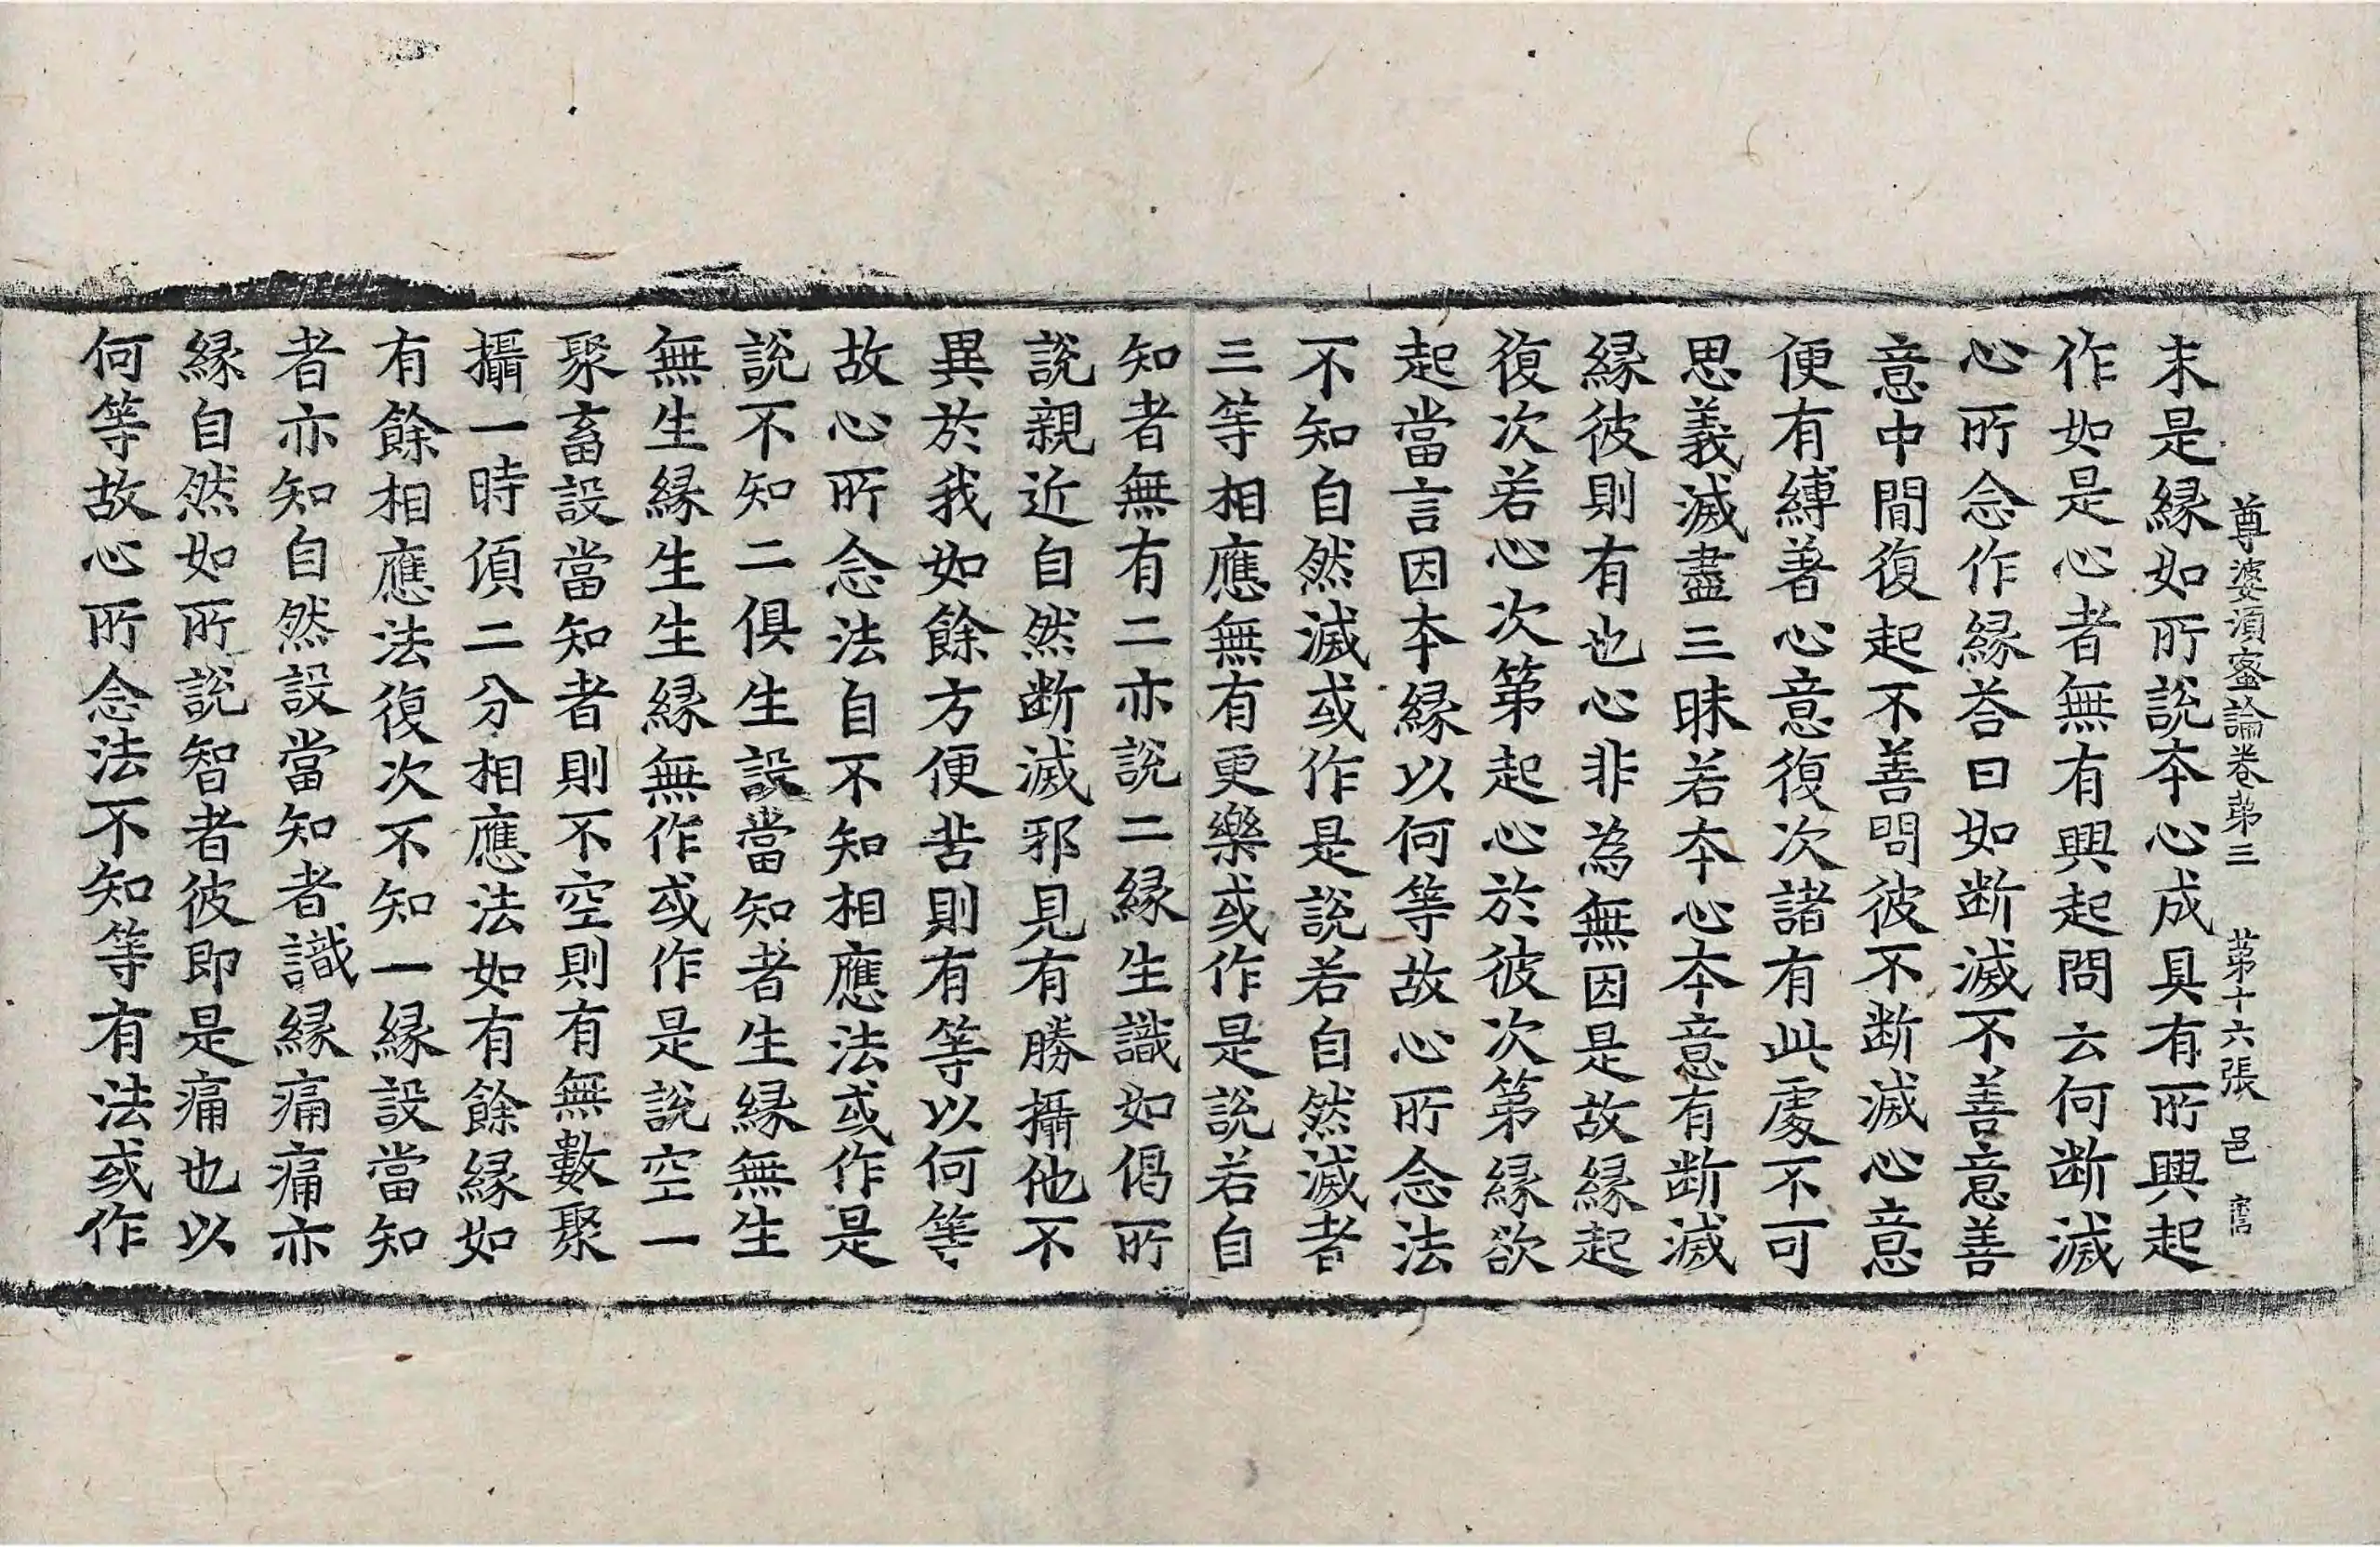 尊婆湏蜜論卷苐三　苐十六張　邑
末是縁如所說本心成具有所興起
作如是心者無有興起問云何断滅
心所念作縁荅曰如断滅不善意善
意中間復起不善問彼不断滅心意
便有縛著心意復次諸有此處不可
思義滅盡三昧若本心本意有断滅
縁彼則有也心非為無因是故縁起
復次若心次第起心於彼次第縁欲
起當言因本縁以何等故心所念法
不知自然滅或作是說若自然滅者
三等相應無有更樂或作是說若自
知者無有二亦說二縁生識如偈所
說親近自然断滅邪見有勝攝他不
異於我如餘方便苦則有等以何等
故心所念法自不知相應法或作是
說不知二俱生設當知者生縁無生
無生縁生生縁無作或作是說空一
聚畜設當知者則不空則有無數聚
攝一時湏二分相應法如有餘縁如
有餘相應法復次不知一縁設當知
者亦知自然設當知者識縁痛痛亦
縁自然如所說智者彼即是痛也以
何等故心所念法不知等有法或作